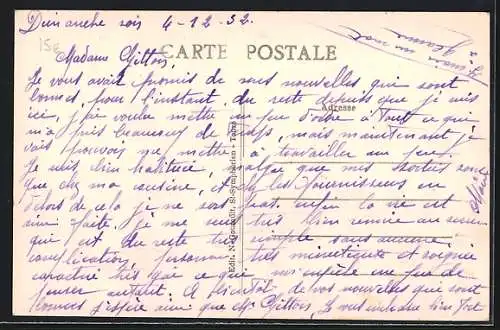 Dimanche soir 4-12-32.
15e
CARTE POSTALE
Madame Gittois,
Je vous avait promis de mes nouvelles qui sont
bonnes, pour l'instant, du reste depuis que je suis
Adresse
ici, j'ai voulu mettre un peu d'ordre à tout ce qui
m'a pris beaucoup de temps, mais maintenant je
vais pouvoir me mettre à travailler un peu.
Je suis bien habituée, malgré que mes sorties sont
que chez ma cousine, et chez les fournisseurs en
dehors de cela je ne sors pas. enfin la vie est
ainsi faite, je me suis très bien remise au
qui est du reste très simple sans aucune
complication, personne très ménutieuse et soignée
caractère très gai ce que me un peu de
penser autant. A bientôt de vos nouvelles qui sont
bonnes j'espère ainsi que Mr Gittois. Je vous embrasse bien fort
Edit. N. St-Symphorien - Tours